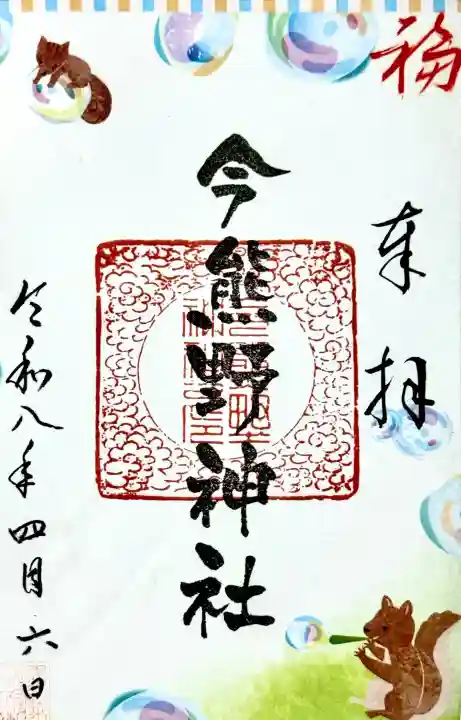 福
奉拝
今熊野神社
令和八年四月六日